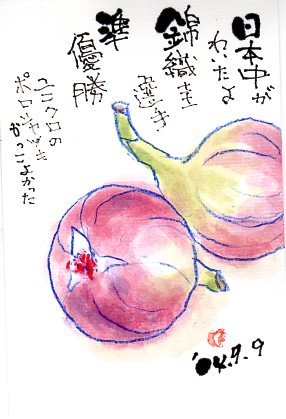 日本中が
わいたよ
錦織圭
選手
準
優勝
ユニクロの
ポロシャツも
かっこよかった
'04.9.9